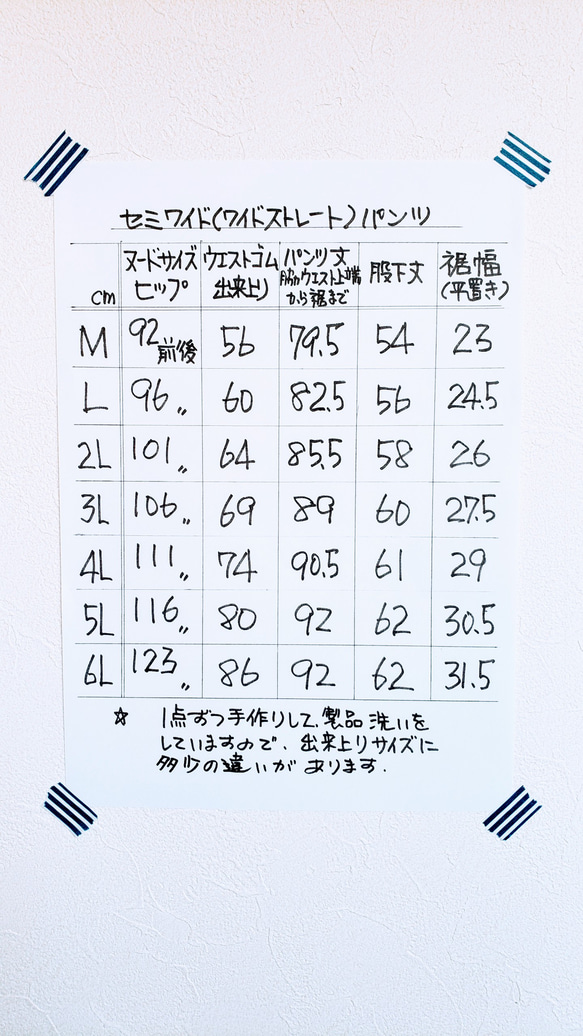 セミワイド(ワイドストレート)パンツ
cm ヌードサイズヒップ ウエストゴム出来上り パンツ丈脇ウエスト上端から裾まで 股下丈 裾幅(平置き)
M 92前後 56 79.5 54 23
L 96〃 60 82.5 56 24.5
2L 101〃 64 85.5 58 26
3L 106〃 69 89 60 27.5
4L 111〃 74 90.5 61 29
5L 116〃 80 92 62 30.5
6L 123〃 86 92 62 31.5
☆ 1点ずつ手作りして、製品洗いを
していますので、出来上りサイズに
多少の違いがあります.